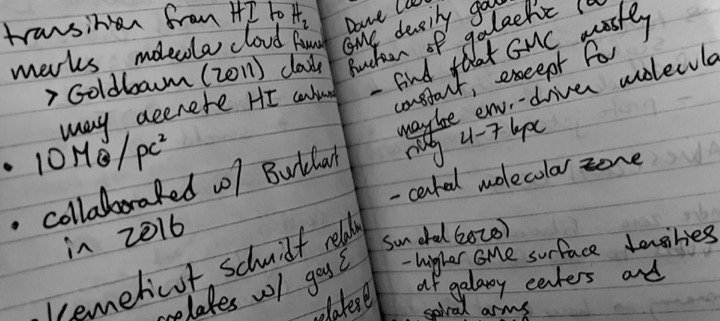 transition from HI to H₂
marks molecular cloud
> Goldbaum (2011) clouds
may accrete HI
• 10 M⊙/pc²
• collaborated w/ Burkhart
in 2016
Schmidt relation
w/ gas Σ
Dame
GMC density
function of galactic
- find that GMC mostly
constant, except for
maybe env.-driven molecula
ring 4-7 kpc
- central molecular zone
Sun et al (2020)
- higher GMC surface densities
at galaxy centers and
spiral arms